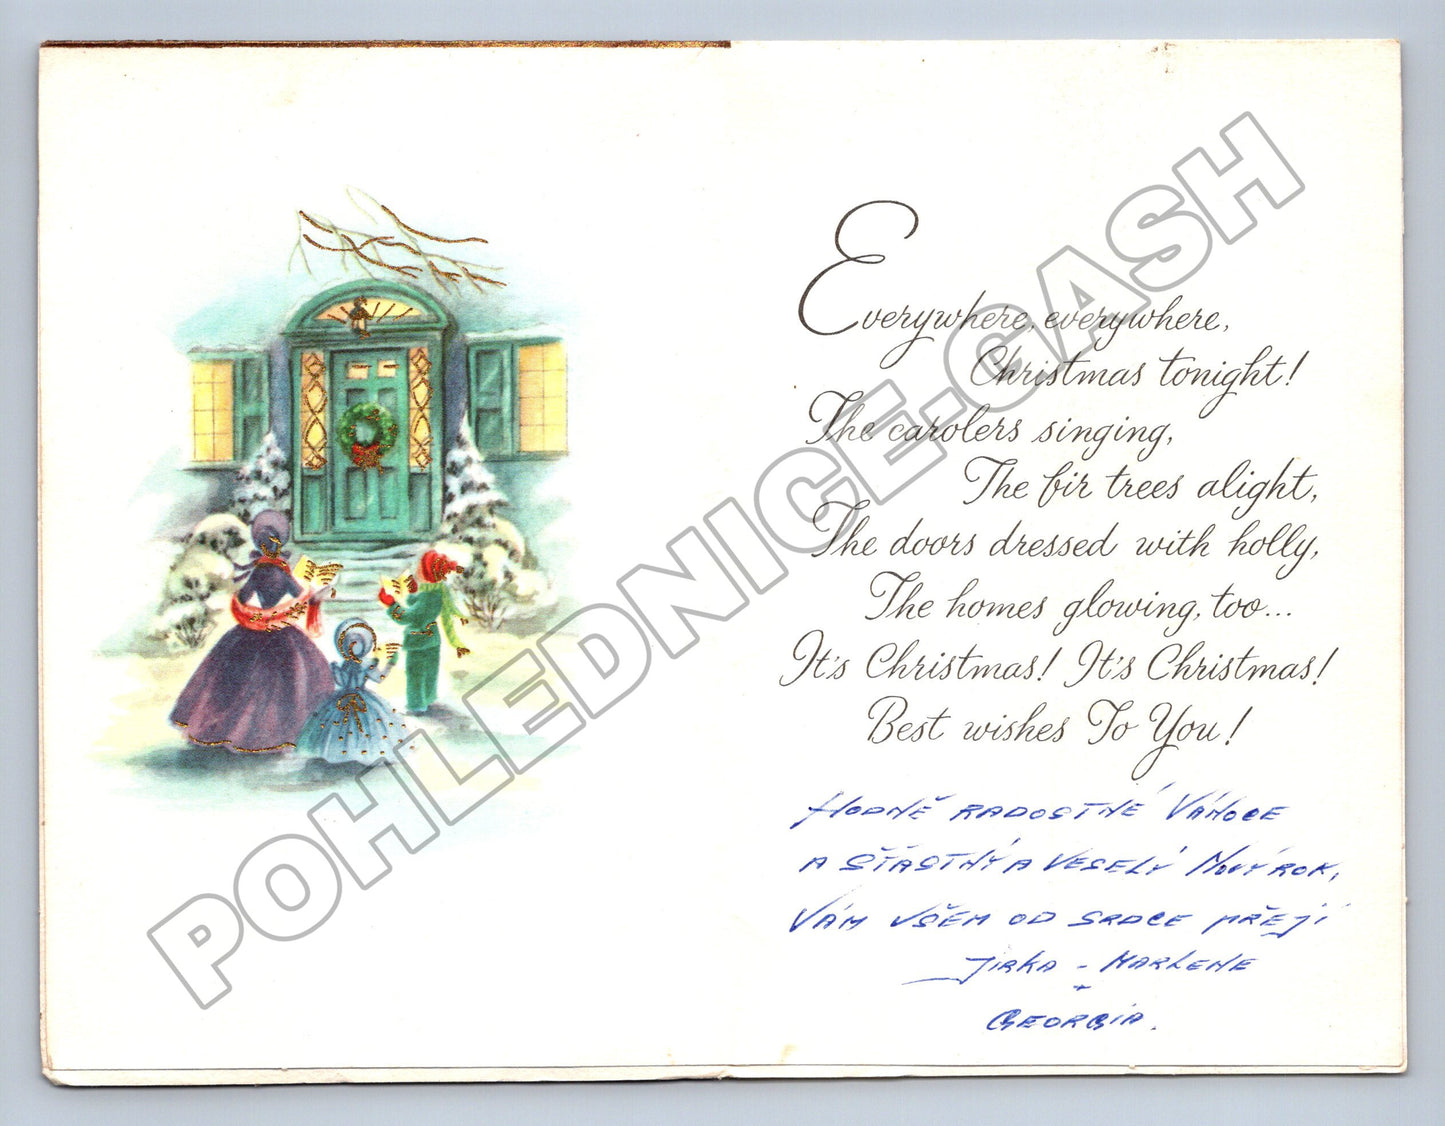 Everywhere, everywhere,
Christmas tonight!
The carolers singing,
The fir trees alight,
The doors dressed with holly,
The homes glowing, too...
It's Christmas! It's Christmas!
Best wishes To You!
HODNĚ RADOSTNÉ VÁNOCE
A ŠŤASTNÝ A VESELÝ NOVÝ ROK,
VÁM VŠEM OD SRDCE PŘEJÍ
JIRKA - MARLENE
+
GEORGIA.
POHLEDNICE.CASH